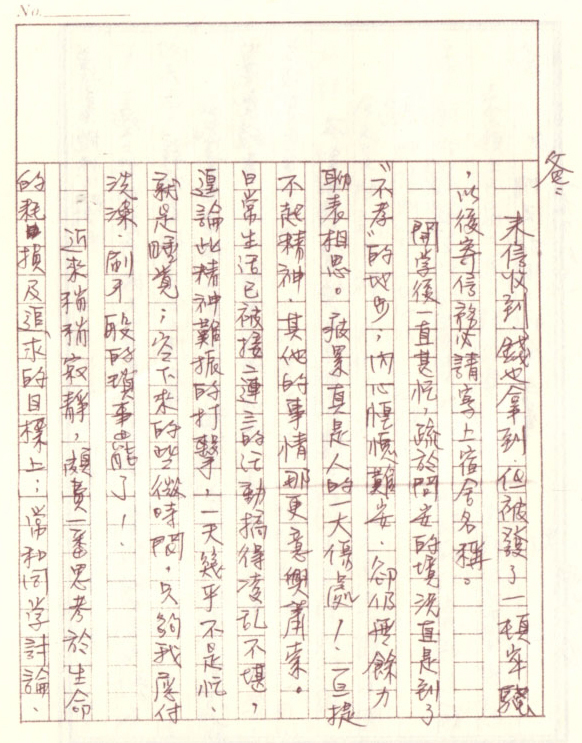 No.
爸：
來信收到，錢也拿到但被發了一頓牢騷
，以後寄信務必請寫上宿舍名稱。
開学後一直甚忙，疏於問安的境況直是到了
"不孝"的地步；內心惶惶難安．卻仍無餘力
聊表相思。疲累真是人的一大傷處！一旦提
不起精神．其他的事情那更意興蕭索。
日常生活已被接二連三的活動搞得凌乱不堪，
遑論此精神難振的打擊，一天幾乎不是忙、
就是睡覚；空下來的些微時間，只夠我應付
洗澡．刷牙般的瑣事罷了！
近來稍稍寂靜，頗費一番思考於生命
的耗損及追求的目標上；常和同学討論、